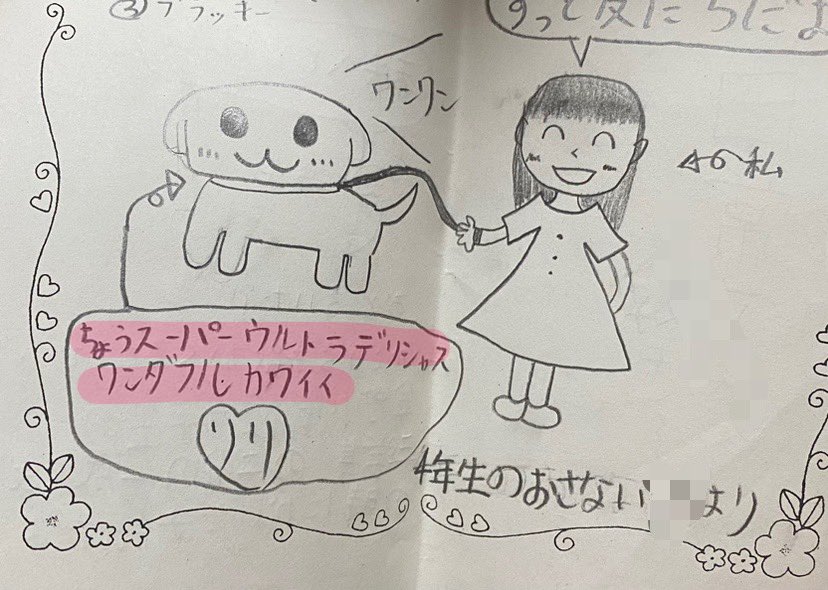 ③ブラッキー
ずっと友だちだよ
ワンワン
私
ちょうスーパーウルトラデリシャス
ワンダフルカワイイ
リリ
4年生のおさない
より